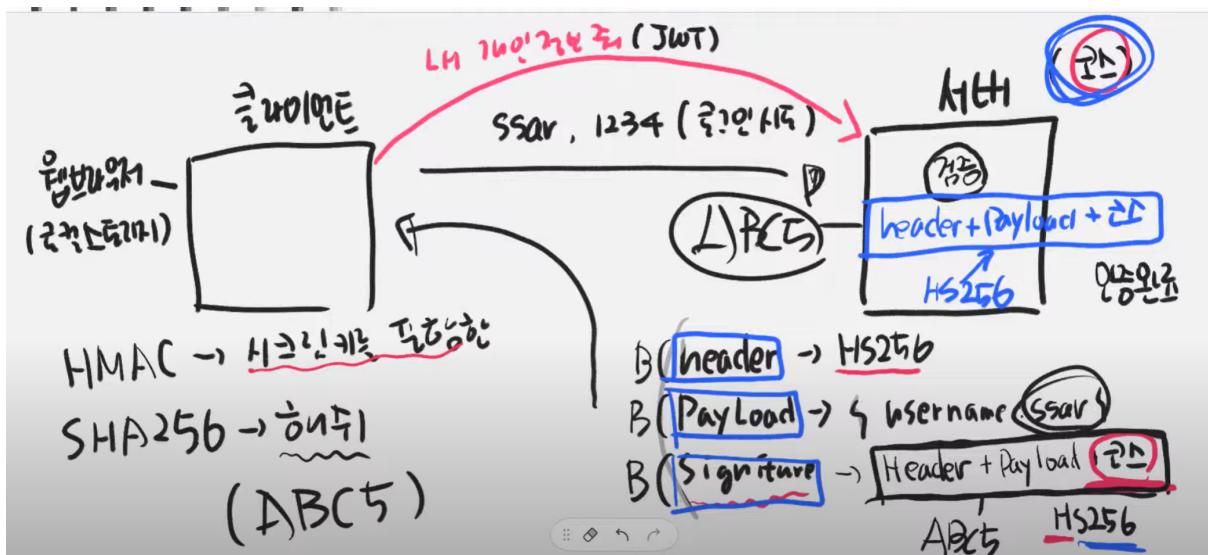 내 개인정보 줘 (JWT)
(코스)
클라이언트
서버
ssar, 1234 (로그인 시도)
웹브라우저
(로컬스토리지)
검증
ABC5
header + Payload + 코스
HS256
인증완료
HMAC → 시크릿키를 포함한
SHA256 → 해쉬
(ABC5)
B(header → HS256
B(PayLoad → { username: ssar }
B(Signiture → Header + Payload 코스
ABC5
HS256